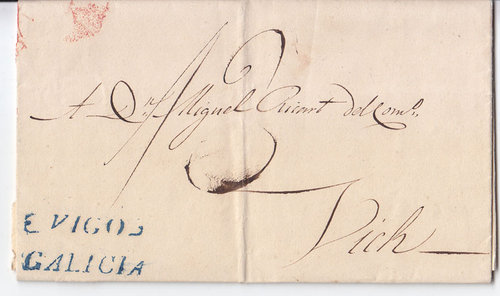 A Dn Miguel Ricart del Como
Vich
E VIGO
GALICIA